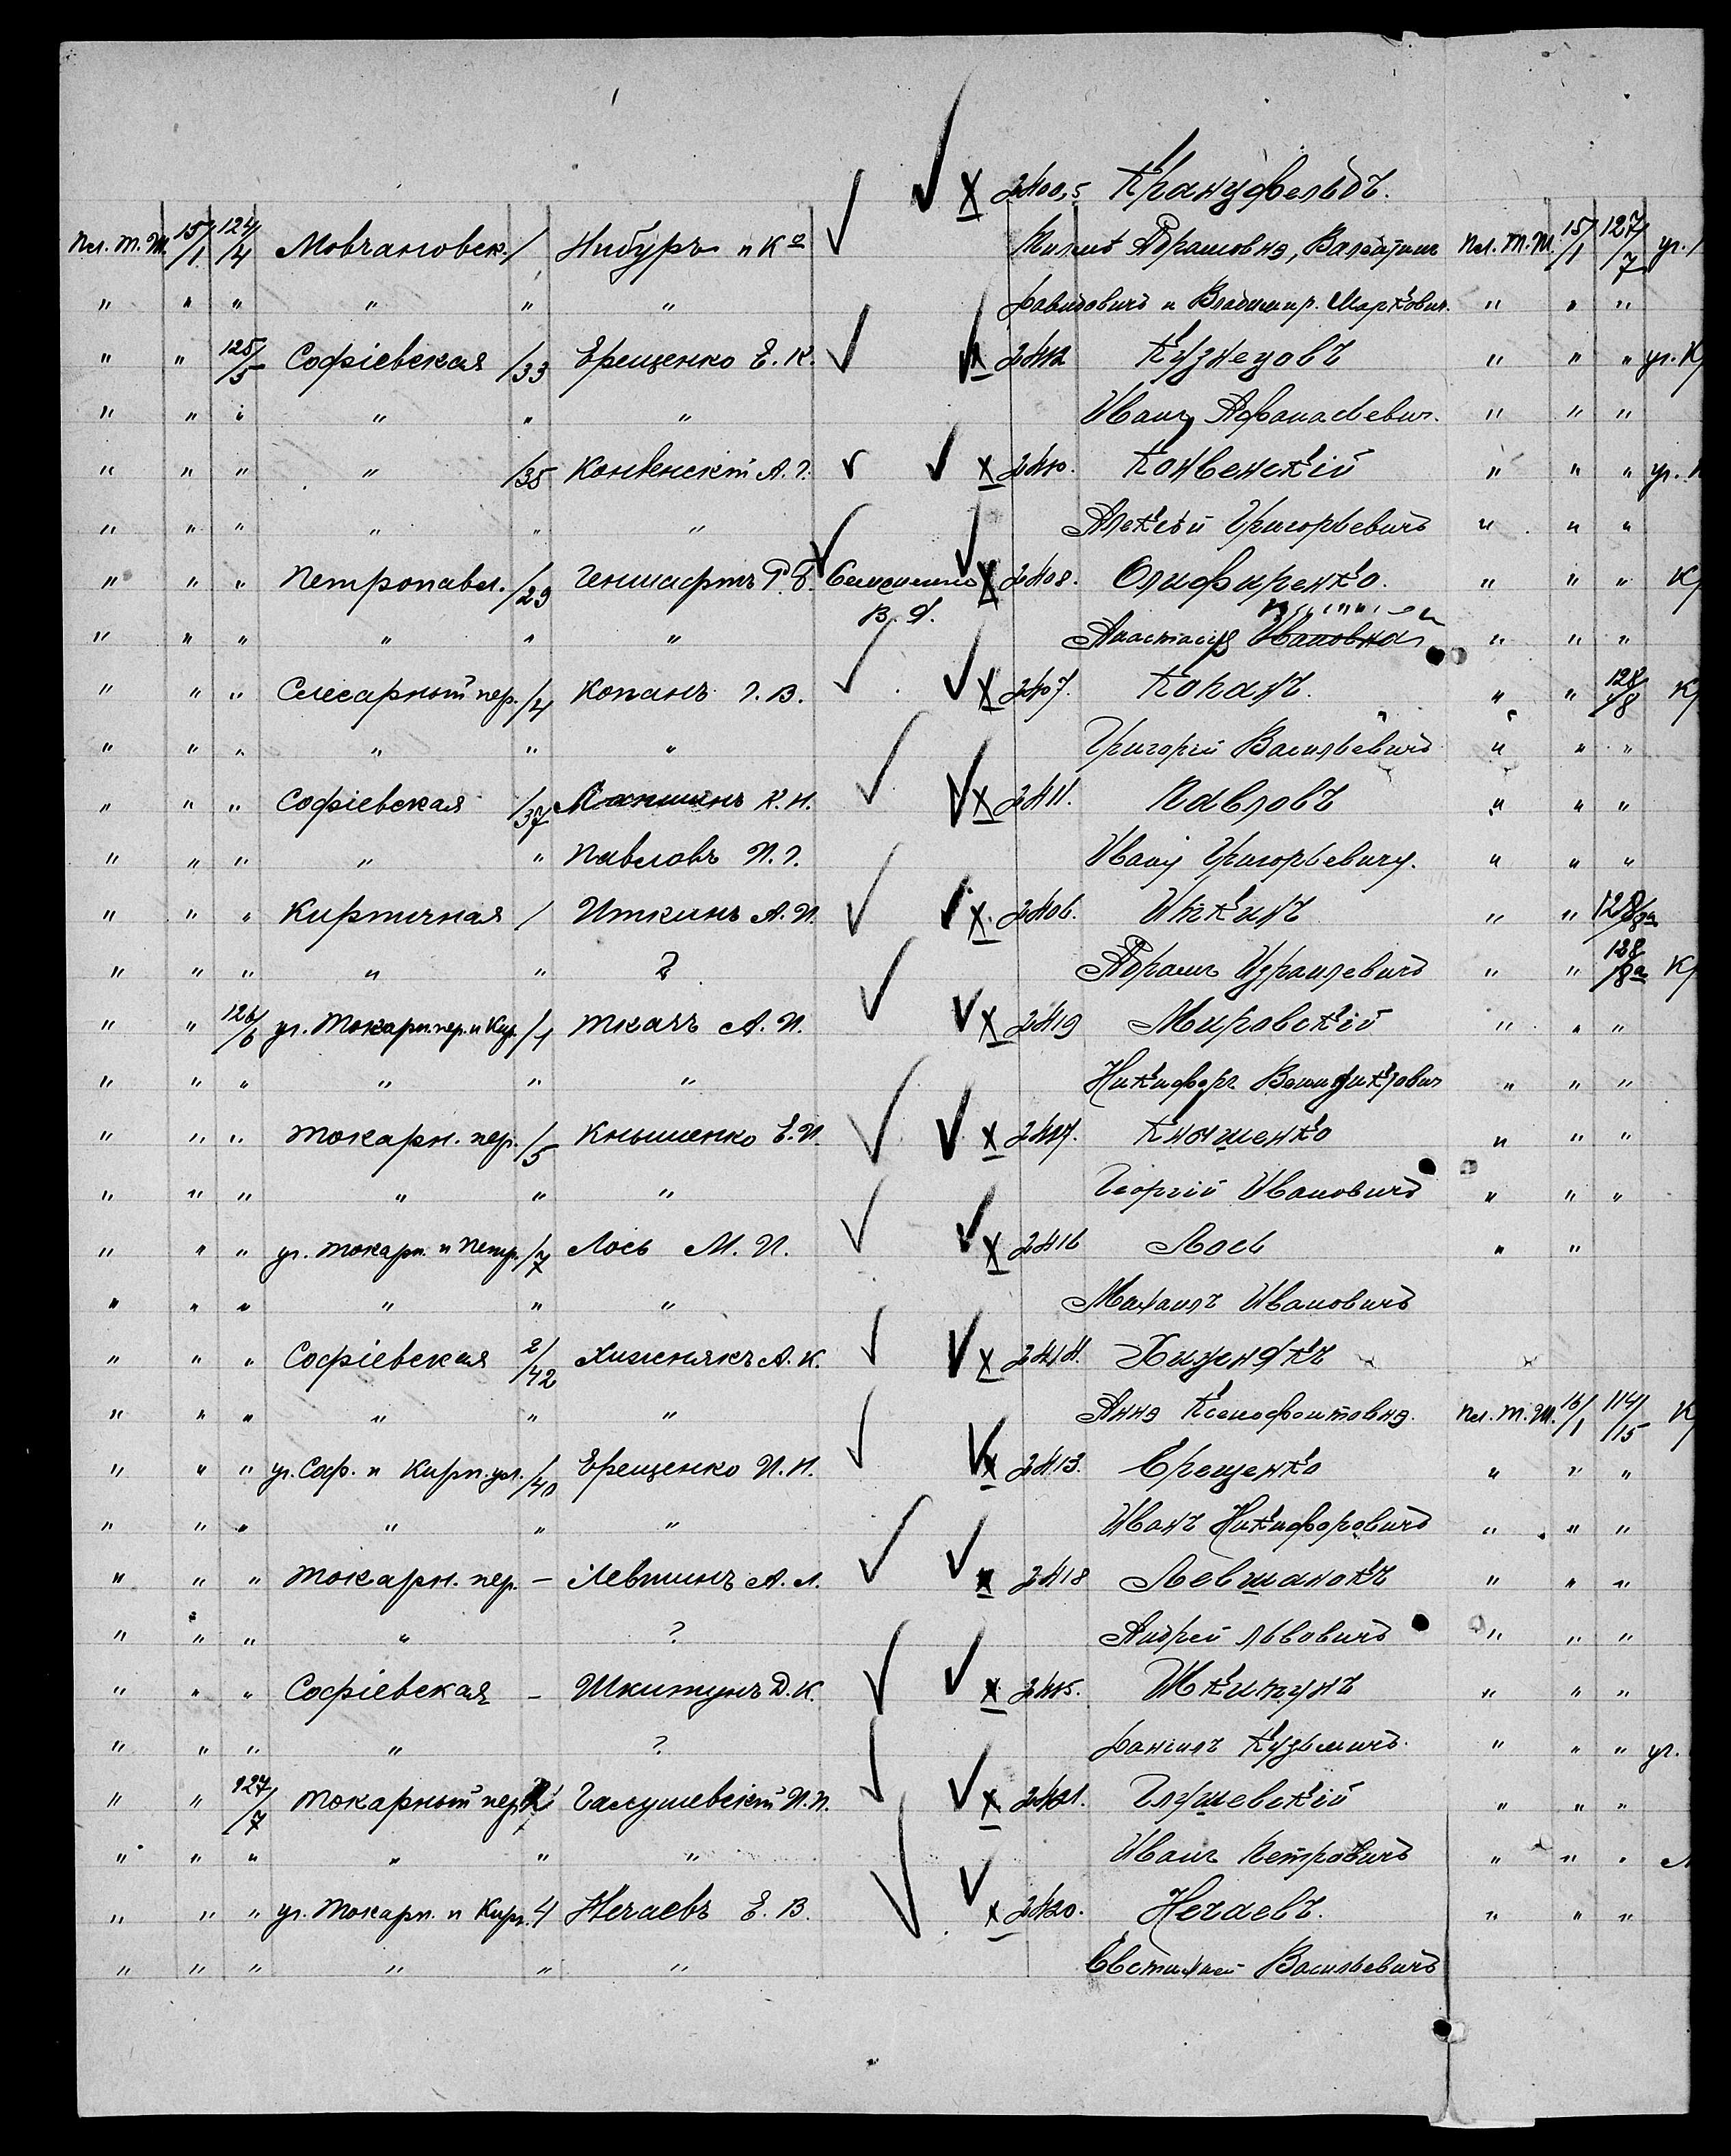 2400,5 Кранцфельдъ.
Пл. Т. Ш. 15/1 124/4 Мовчановск. / Нибуръ и Кº Абрамовна, Пл. Т. Ш. 15/1 127/7 уг.
" " " " " " Давидовичъ и Владимир. Маркович. " " "
" " 125/5 Софіевская /33 Ерещенко Е. К. 2412 Кузнецовъ " " " уг. К
" " " " " " Иванъ Афанасьевич. " " "
" " " " /35 Конвенскій А. Г. 2410. Конвенскій " " " уг.
" " " " " " Алексѣй Григорьевичъ " " "
" " " Петропавл. /29 Геншафтъ Р. 2408. Олифиренко. " " " К
В. Я.
" " " " " " Анастасія Ивановна " " "
" " " Слесарный пер. /4 Копанъ Г. В. 2407. Копанъ. " " 128/8 К
" " " " " " Григорій Васильевичъ " " "
" " " Софіевская /37 Лапшинъ К. Н. 2411. Павловъ " " "
" " " " " Павловъ И. Г. Ивану Григорьевичу. " " "
" " " Кирпичная / Иткинъ А. И. 2406. Иткинъ " " 128/8а
" " " " " ? Абрамъ Израилевичъ " " 128/8а К
" " 126/6 уг. Токарн. пер. и Кир. /1 Ткачъ А. И. 2419 Мировскій " " "
" " " " " " Никифоръ " " "
" " " Токарн. пер. /5 Кнышенко Е. И. 2417. Кнышенко " " "
" " " " " " Георгій Ивановичъ " " "
" " " уг. Токарн. и Петр. /7 Лось М. И. 2416 Лось " "
" " " " " " Михаилъ Ивановичъ
" " " Софіевская 2/42 Хижнякъ А. К. 2414. Хиженякъ
" " " " " " Анна Ксенофонтовна. Пл. Т. Ш. 16/1 114/15 К
" " " уг. Соф. и Кирп. ул. /40 Ерещенко И. Н. 2413. Ерещенко " " "
" " " " " " Иванъ Никифоровичъ " " "
" " " Токарн. пер. – Левшинъ А. Л. 2418 Левшанокъ " " "
" " " " ? Андрей Львовичъ " " "
" " " Софіевская – Шкитунъ Д. К. 2415. Шкитунъ " " "
" " " " ? Данилъ Кузьмичъ. " " " уг.
" " 127/7 Токарный пер. Галушевскій И. П. 2421. Глушевскій " " "
" " " " " " Иванъ Петровичъ " " "
" " " уг. Токарн. и Кирп. 4 Нечаевъ Е. В. 2420. Нечаевъ. " " "
" " " " " " Евстихій Васильевичъ